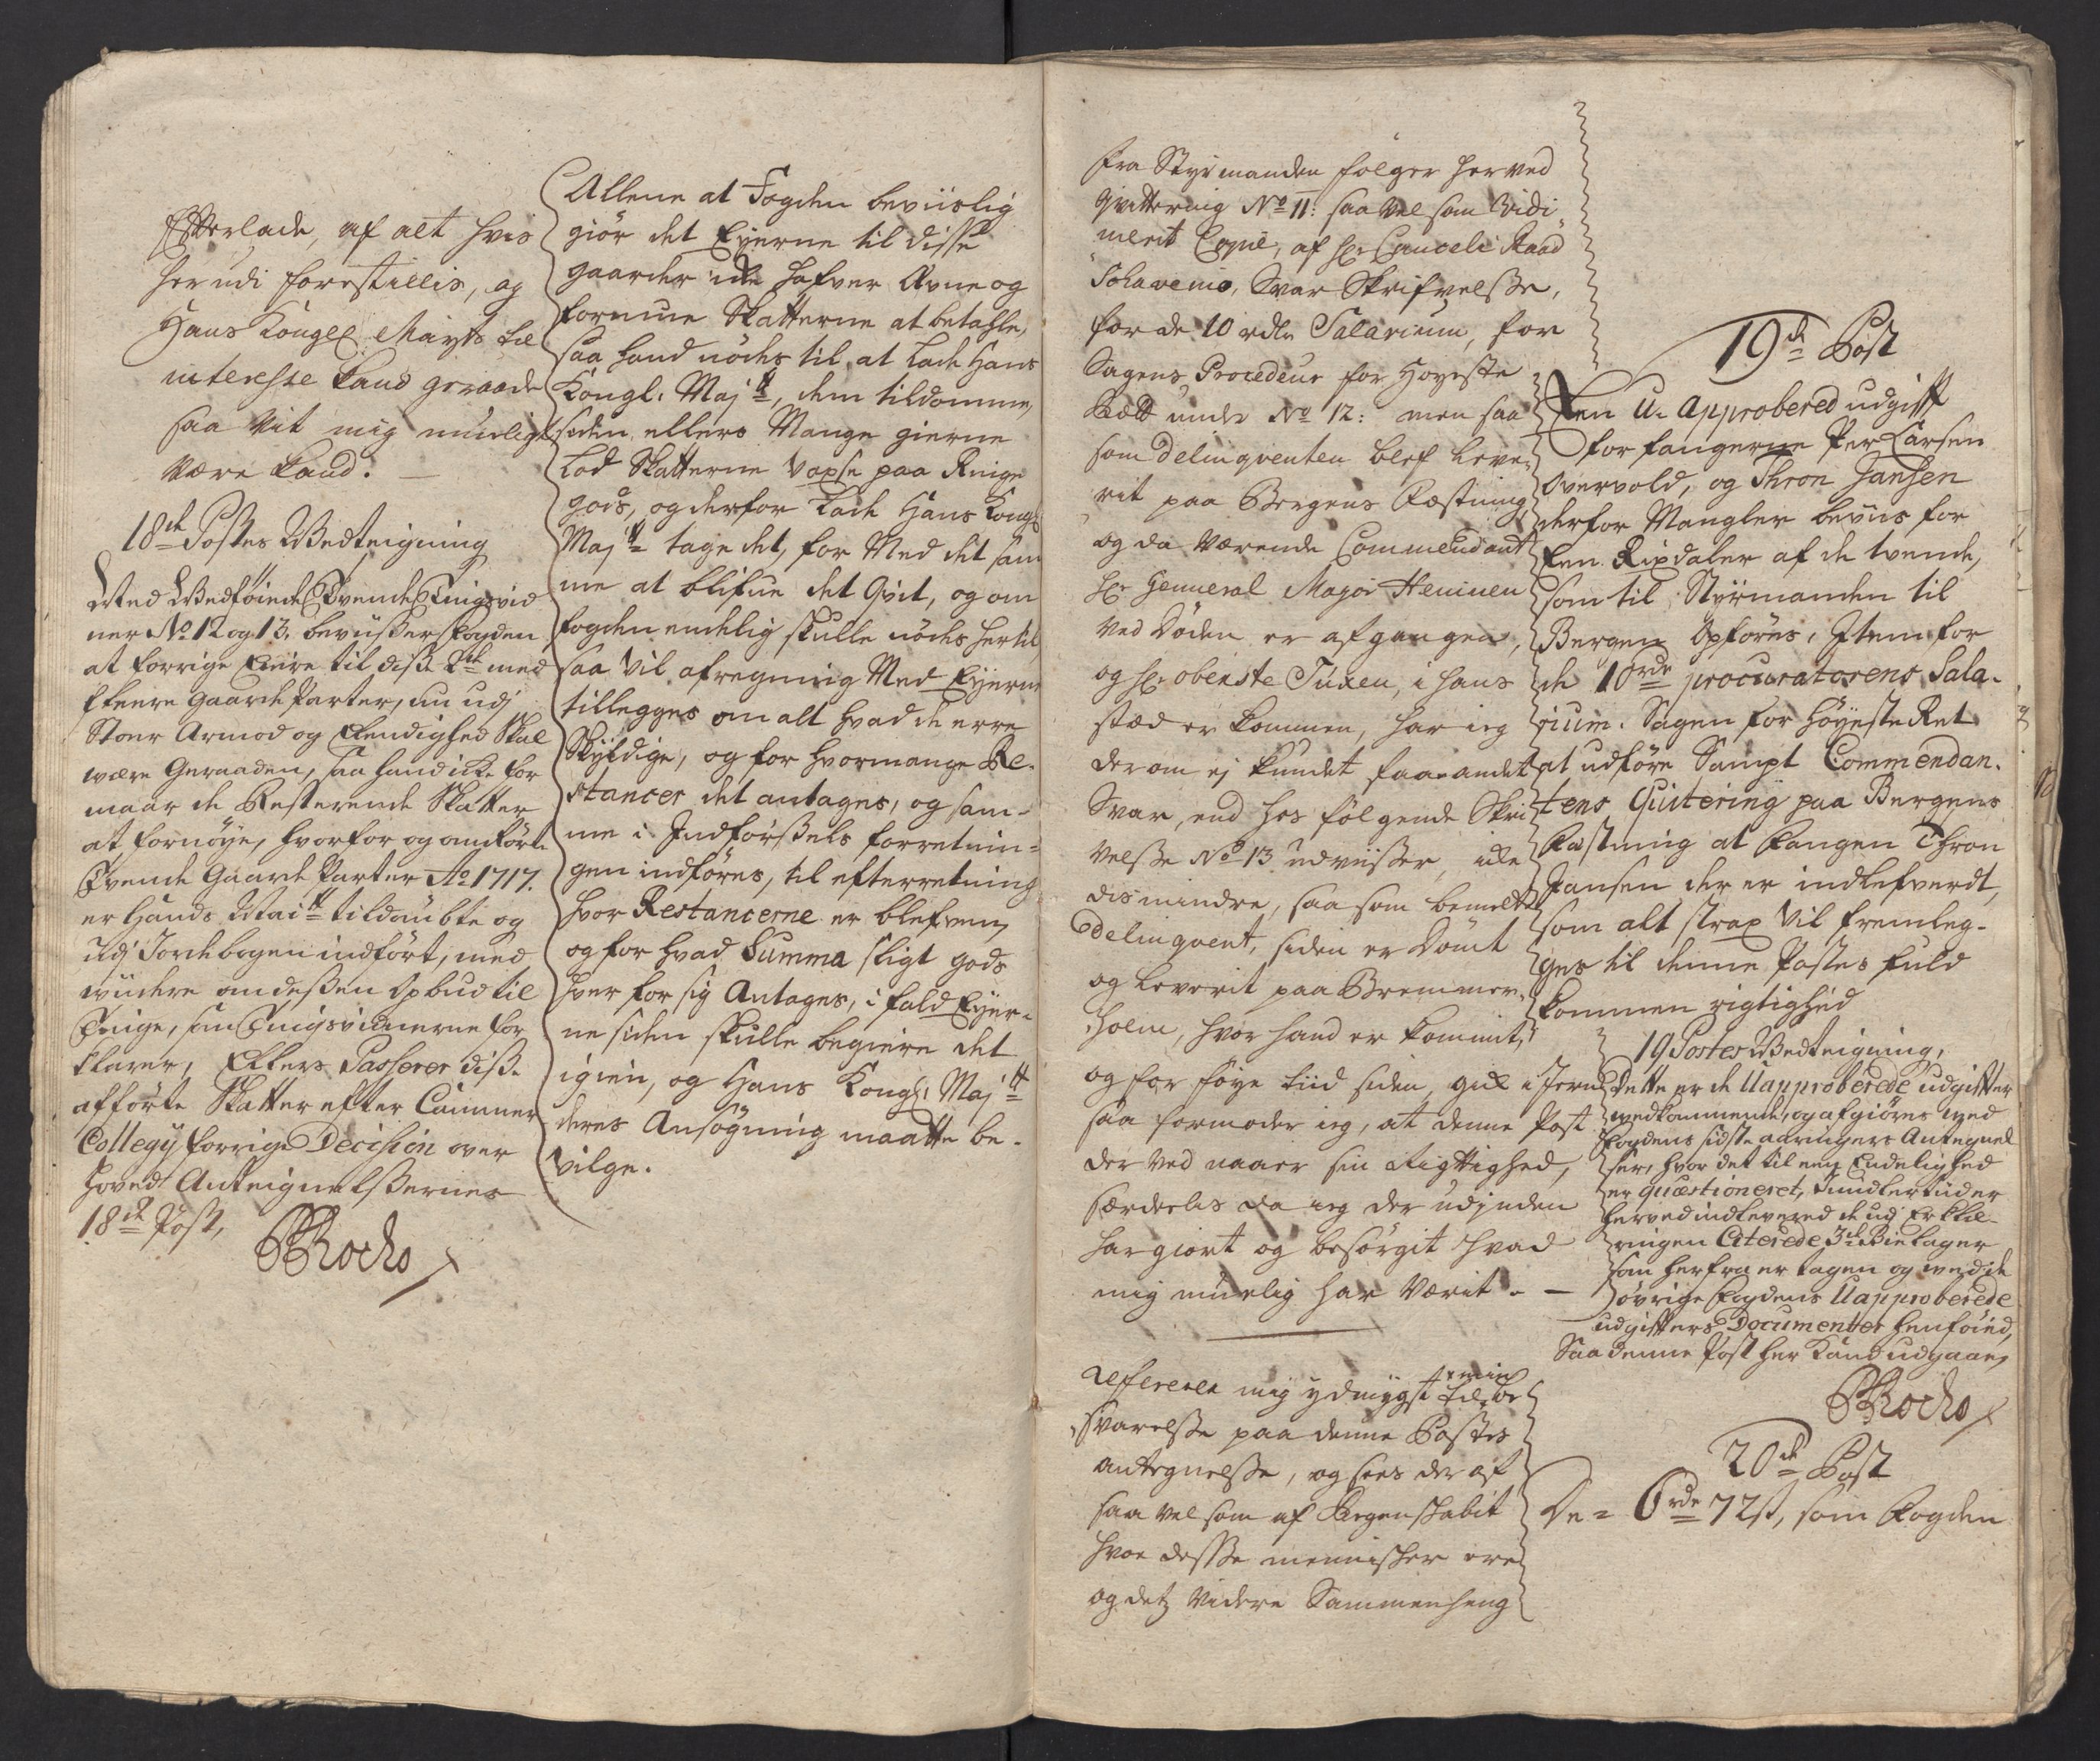 Efterlade, af alt hvis
her udi forestillis, og
Hans Kongl: Mayts til
interesse kand geraade
saa vit mig mueligt
være kand.
18de Postes Bedteigning
Med Bedføiede Tvende Tingsvid
ner No 12 og 13. beviisser fogden
at forrige Eiere til disse 2de med
fleere gaarde Parter, nu udj
Stoer Armod og Elendighed Skal
være Geraaden, saa hand icke for
maar de Resterende Skatter
at fornøye, hvorfor og anførte
Tvende Gaarde Parter Ao 1717.
er Hands Mait tildømbte og
udj Jordebogen indført, med
viidere om dessen Opbud til
Tinge, som Tingsvidnerne for
klarer, Ellers Passerer disse
afførte Skatter efter Cammer
Collegij forrige Decision over
hoved Anteignelssernes
18de Post,
PRocho
Allene at Fogden beviislig
giør det Eyerne til disse
gaarder icke hafverÆvne og
formue Skatterne at betahle,
saa hand nødes til at lade Hans
Kongl: Majtt, dem tildømme,
siden ellers Mange gierne
lod Skatterne Voxse paa Ringe
gods, og derfor lade Hans Kongl:
Majtt tage det, for Med det sam
me at blifve det qvit, og om
fogden endelig skulle nødes hertil
saa vil afregning Med Eyerne
tillegges om alt hvad de erre
Skyldige, og for hvormange Re-
stancer det antages, og sam-
me i Indførsels forretnin-
gen indføres, til efterretning
hvor Restancerne er blefven,
og for hvad Summa sligt gods
hver for sig Antages, i fald Eyer-
ne siden skulle begiere det
igien, og Hans Kongl: Majtt
deres Ansøgning maatte be-
vilge.
fra Styrmanden følger herved
qvittering No 11: saa vel som vidi
merit Copie, af Hr Cancelie Raad
Svar Skrifvelsse,
for de 10 rdlr Salarium, for
Sagens Procedeur for Høyeste
Rætt under No 12: men saa
som Delinqventen blef leve-
rit paa Bergens Fæstning
og da værende Commendant
Hr General Major Heninen
ved døden er afgangen,
og Hr oberste Tuxen, i hans
stæd er kommen, har ieg
der om ej kundet faae andet
Svar, end hos følgende Skri
velsse No 13 udviisser, icke
dis mindre, saa som bemelte
Delinqvent, siden er dømt
og leverit paa Bremmer-
holm, hvor hand er kommit,
og for føye tiid siden gik i Jern
saa formoder ieg, at denne Post
der ved naaer sin Rigtighed,
særdeles da ieg der udjnden
har giort og besørgit hvad
mig muelig har værit. —
Refererer mig ydmygst til min be
svarelsse paa denne Postes
antegnelsse, og sees der af
saa vel som af Regenskabit
hvor disse mennisker ere
og detz videre Sammenheng
19de Post
Een U-Approbered udgift
for fangerne Per Larsen
Overvold, og Thron Jansen
derfor Mangler beviis for
Een Rixdaler af de tvende,
som til Styrmanden til
Bergen Opføres, Item for
de 10 rdr procuratorens Sala-
rium. Sagen for høyeste Ret
at udføre Sampt Commendan-
tens Quitering paa Bergens
Fæstning at Fangen Thron
Jansen der er indlefverdt,
som alt strax vil fremleg-
ges til denne Postes fuld
kommen rigtighed
19 Postes Bedteigning,
Dette er de Uapproberede udgifter
vedkommende, og afgiøres ved
fogdens sidste aaringers Antegnel
ser, hvor det til een Endelighed
er quæstioneret, imidlertiid er
herved indlevered de udj Erklæ-
ringen Citerede 3de Bielager
som herfra er tagen og ved de
øvrige Fogdens Uapproberede
udgifters Documenter henføied,
Saa denne Post her kand udgaae,
PRocho
20de Post
De 6 rdr 72 s, som Fogden